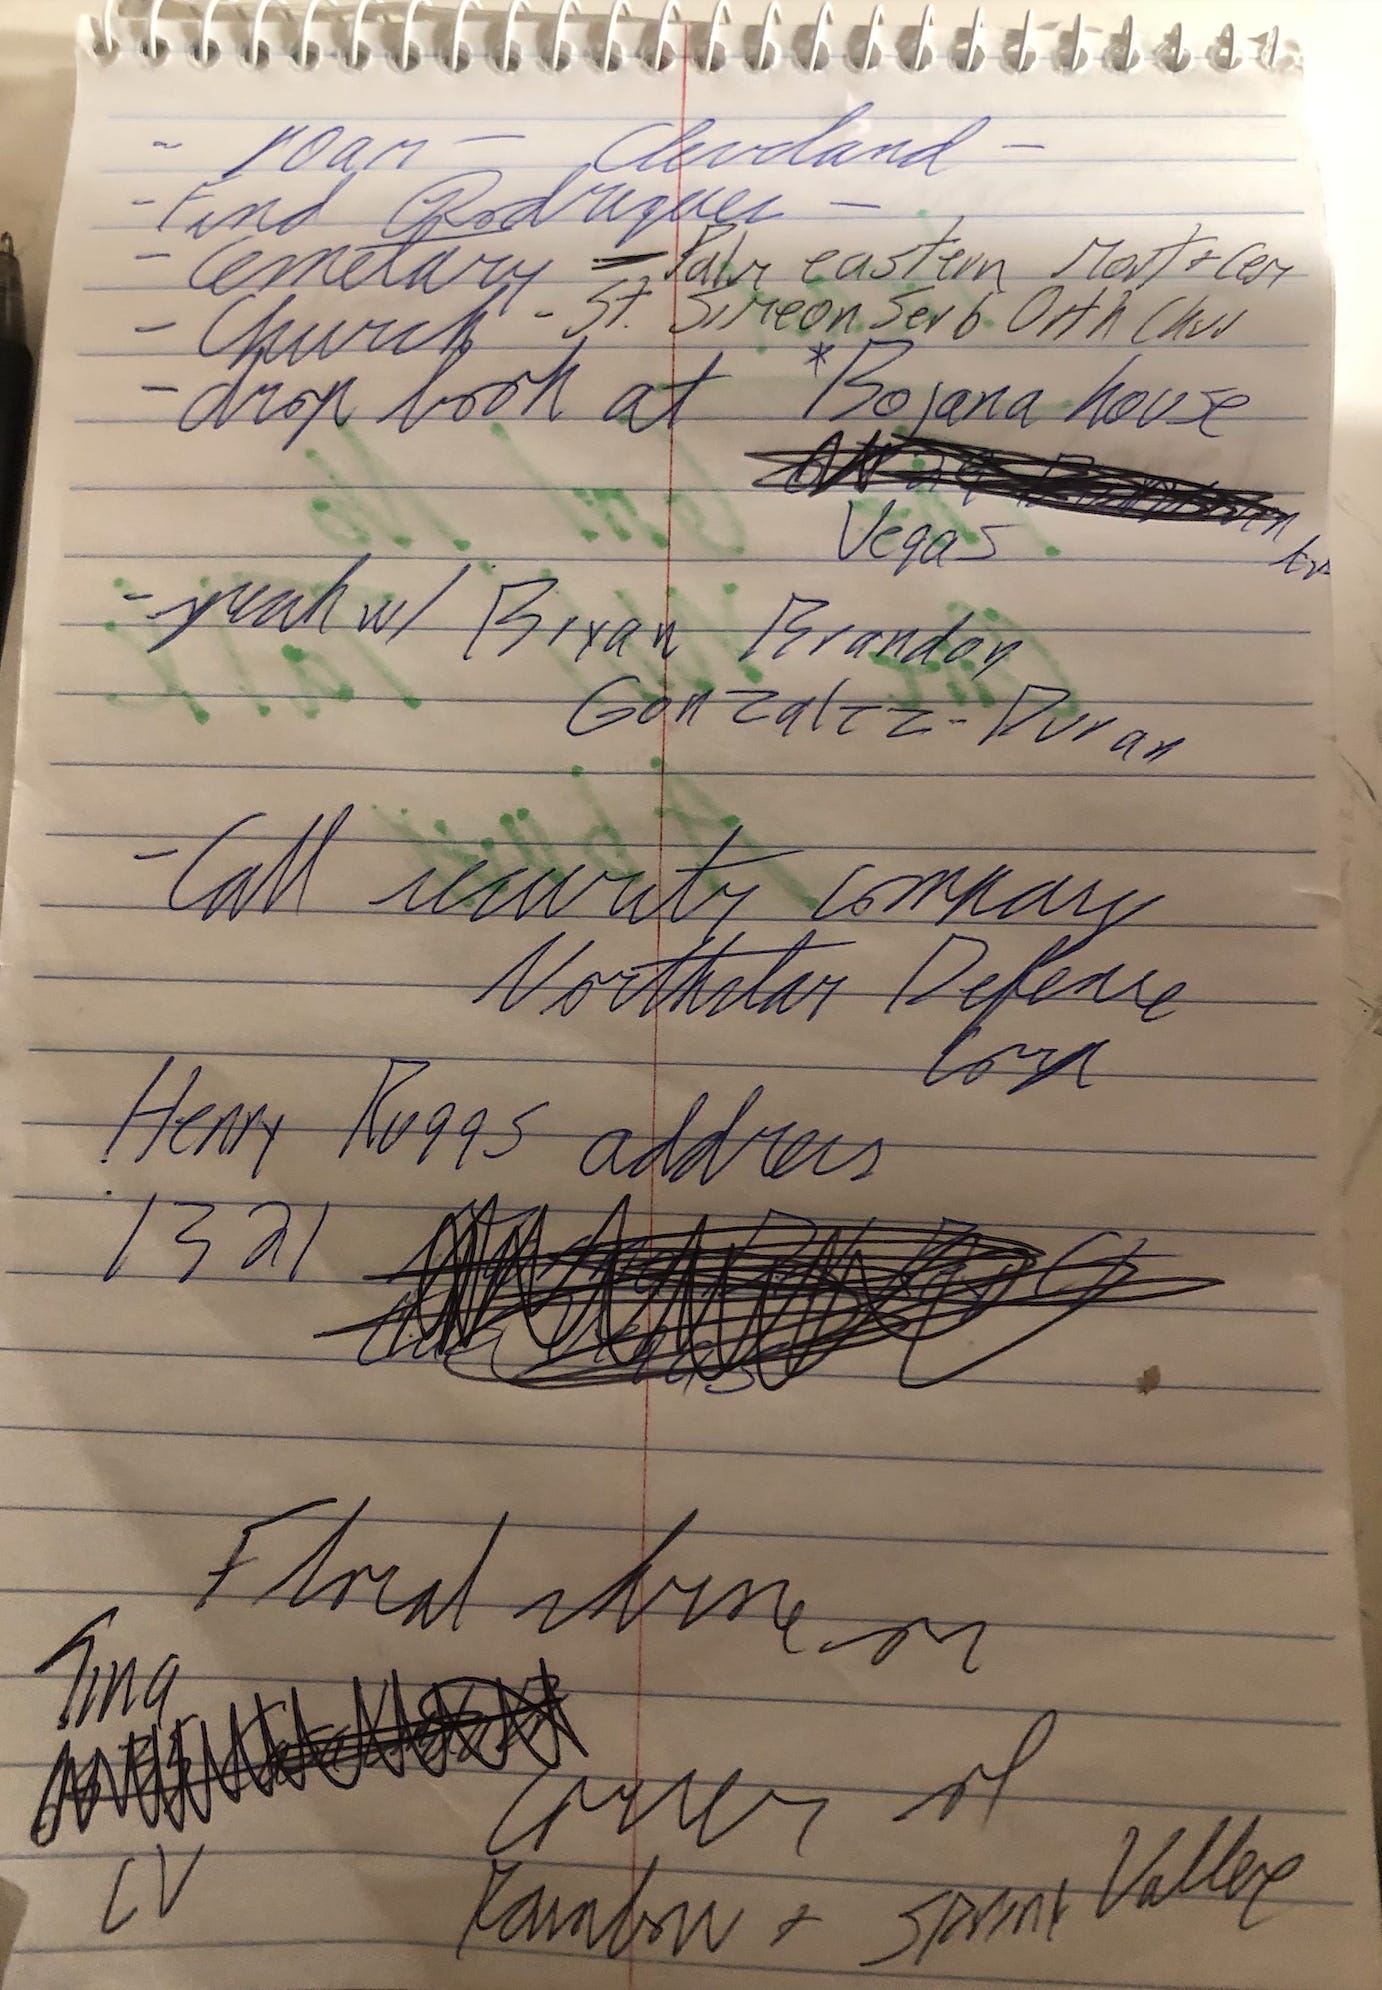 - roam - Cleveland -
- Find Rodriguez -
- Cemetary - Palm eastern Mort + Cem
- Church - St. Simeon Serb Orth Chur
- drop book at *Bojana house
Vegas
- speak w/ Bryan Brandon
Gonzalez-Duran
- Call security company
Northstar Defense
Corp
Henry Ruggs address
1321
Floral shrine on
Tina
corner of
LV
Rainbow + Spring Valley